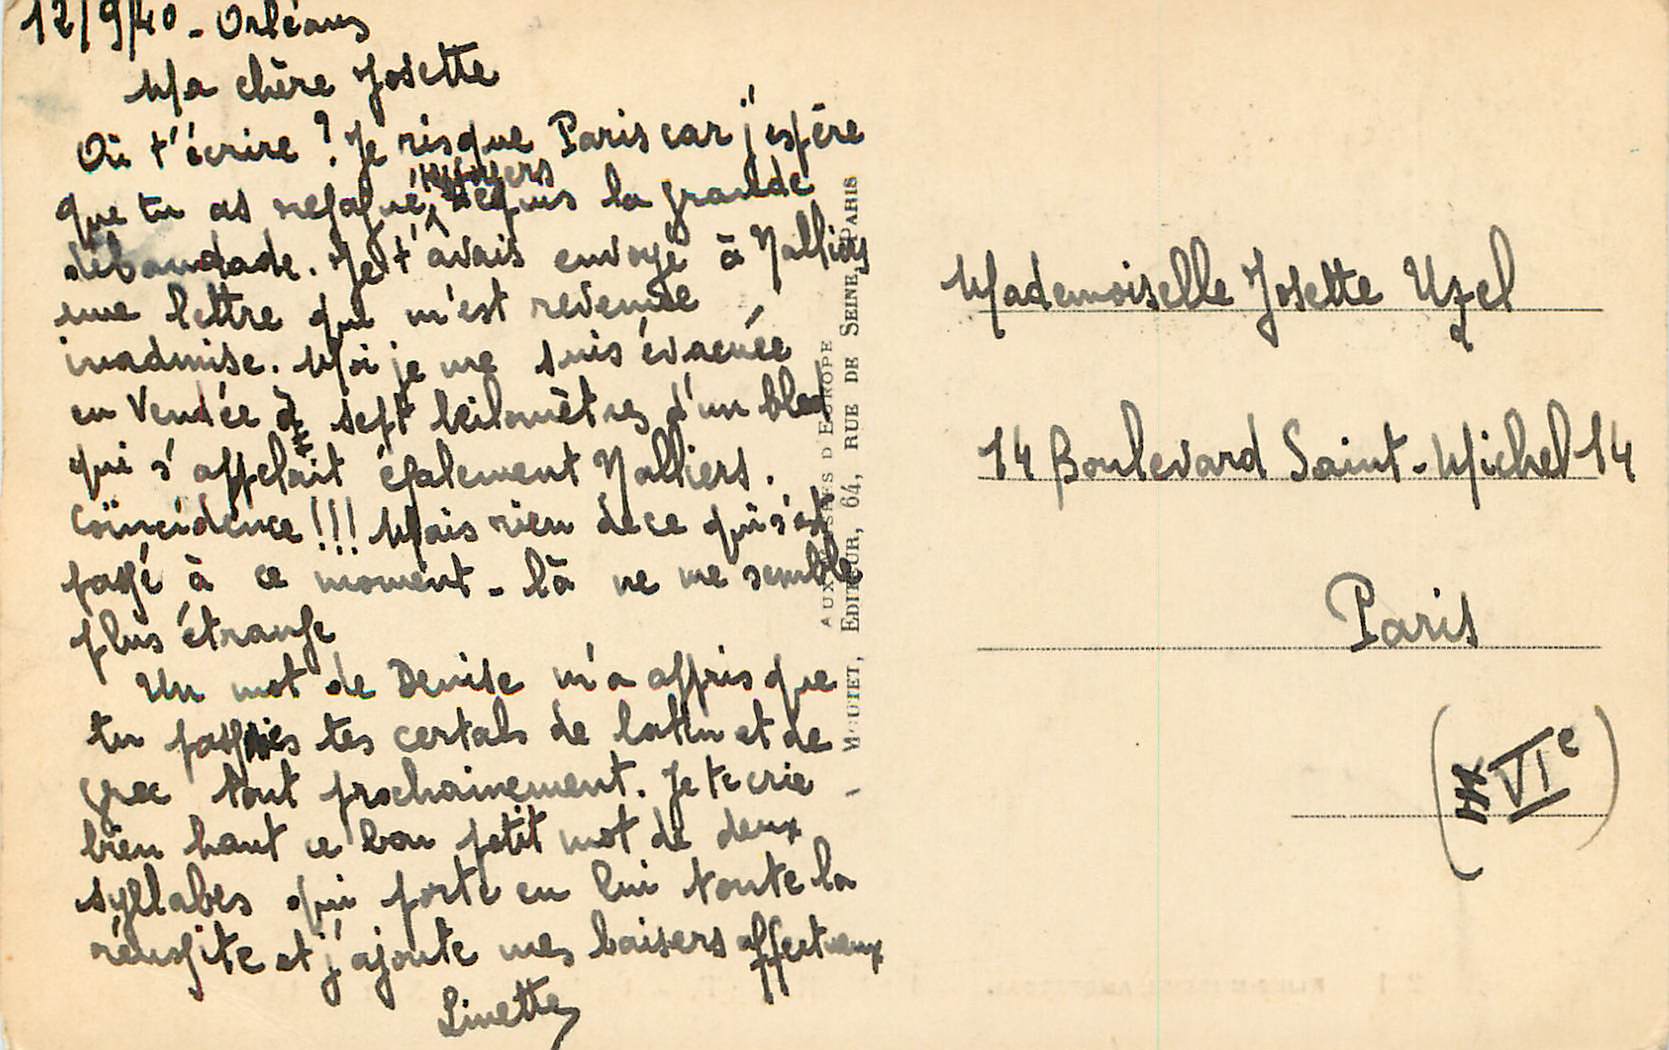 12/9/40 - Orléans
Ma chère Josette
Où t'écrire ? Je risque Paris car j'espère
que tu as regagné, depuis la grande
débandade. Je t'avais envoyé à Nalliers
une lettre qui m'est revenue
inadmise. Moi je me suis évacuée
en Vendée à sept kilomètres d'un bled
qui s'appelait également Nalliers.
Coïncidence !!! Mais rien de ce qui s'est
passé à ce moment-là ne me semble
plus étrange
Un mot de Denise m'a appris que
tu passes tes certals de latin et de
grec tout prochainement. Je te crie
bien haut ce bon petit mot de deux
syllabes qui porte en lui toute la
réussite et j'ajoute mes baisers affectueux
Linette
AUX MUSÉES D'EUROPE
MOUTET, EDITEUR, 64, RUE DE SEINE, PARIS
Mademoiselle Josette Uzel
14 Boulevard Saint-Michel 14
Paris
(VIe)